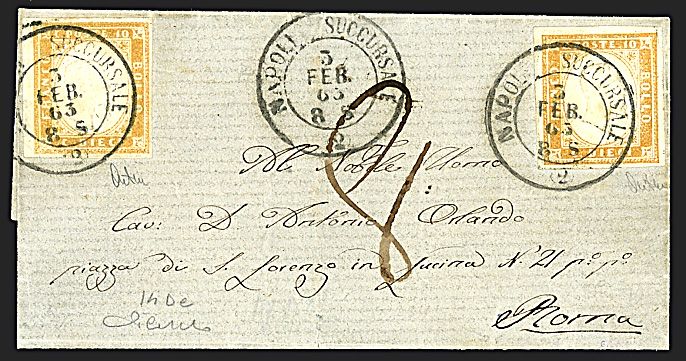 NAPOLI SUCCURSALE
3
FEB.
63
8 S
(2)
SUCCURSALE
3
FEB.
63
8 S
(2)
10
BOLLO
DIECI
NAPOLI SUCCURSALE
3
FEB.
63
8 S
(2)
POSTE 10
BOLLO
DIECI
8
Al Nobile Uomo
Cav: D Antonio Orlando
piazza di S. Lorenzo in Lucina N. 21 p.º p.º
Roma